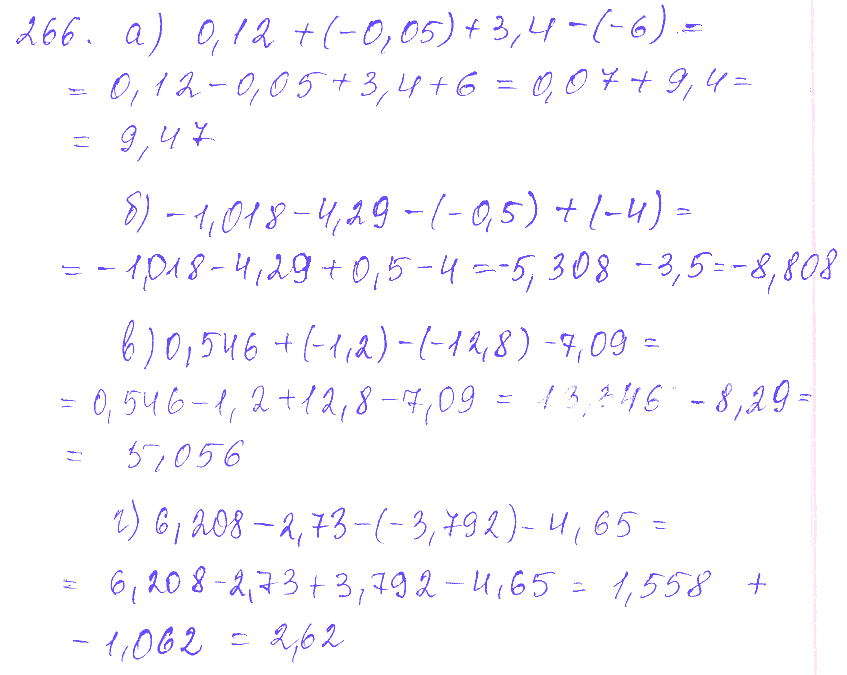 266. а) 0,12 +(-0,05)+3,4-(-6)=
= 0,12-0,05+3,4+6 = 0,07+9,4=
= 9,47
б) -1,018-4,29-(-0,5)+(-4)=
= -1,018-4,29+0,5-4=-5,308 -3,5=-8,808
в) 0,546+(-1,2)-(-12,8)-7,09 =
= 0,546-1,2+12,8-7,09 = 13,346 -8,29=
= 5,056
г) 6,208-2,73-(-3,792)-4,65 =
= 6,208-2,73+3,792-4,65 = 1,558 +
-1,062 = 2,62